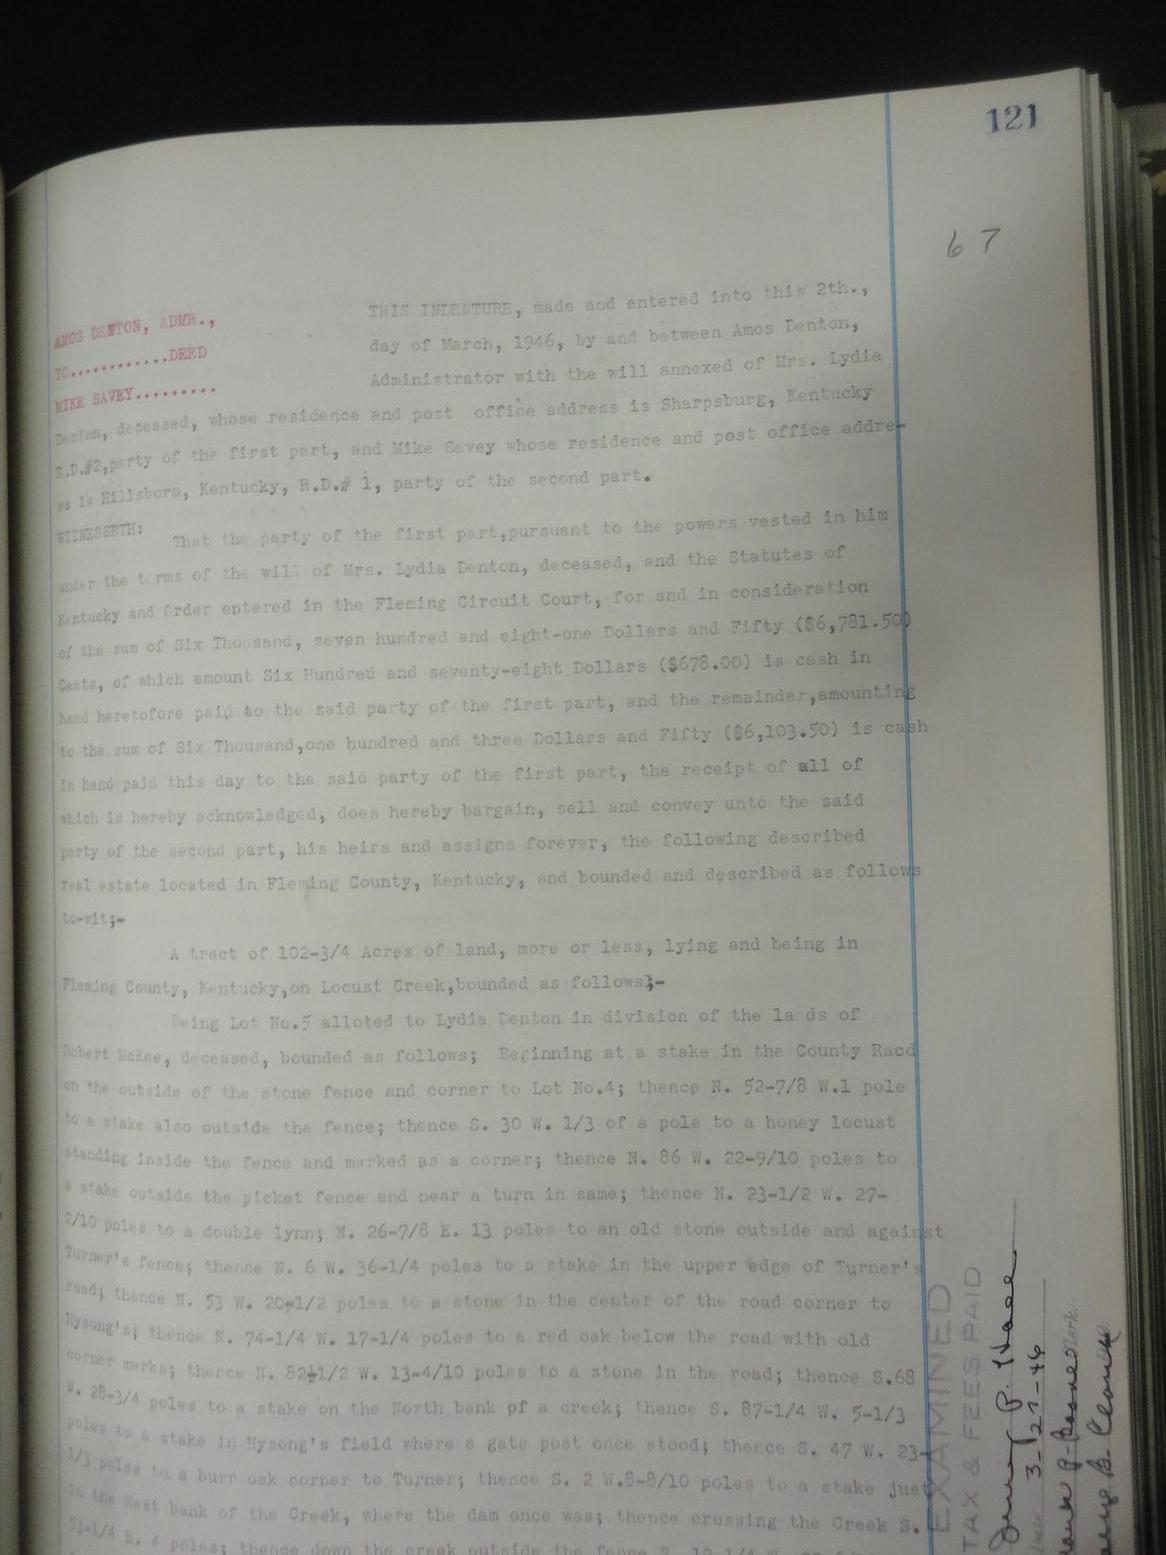 121
67
AMOS DENTON, ADMR.,
TO............DEED
MIKE SAVEY.........
THIS INDENTURE, made and entered into this 2th.,
day of March, 1946, by and between Amos Denton,
Administrator with the will annexed of Mrs. Lydia
Denton, deceased, whose residence and post office address is Sharpsburg, Kentucky
R.D.#2,party of the first part, and Mike Savey whose residence and post office addre-
ss is Hillsboro, Kentucky, R.D.# 1, party of the second part.
WITNESSETH: That the party of the first part,pursuant to the powers vested in him
under the terms of the will of Mrs. Lydia Denton, deceased, and the Statutes of
Kentucky and Order entered in the Fleming Circuit Court, for and in consideration
of the sum of Six Thousand, seven hundred and eight-one Dollars and Fifty ($6,781.50)
Cents, of which amount Six Hundred and seventy-eight Dollars ($678.00) is cash in
hand heretofore paid to the said party of the first part, and the remainder,amounting
to the sum of Six Thousand,one hundred and three Dollars and Fifty ($6,103.50) is cash
in hand paid this day to the said party of the first part, the receipt of all of
which is hereby acknowledged, does hereby bargain, sell and convey unto the said
party of the second part, his heirs and assigns forever, the following described
real estate located in Fleming County, Kentucky, and bounded and described as follows
to-wit;-
A tract of 102-3/4 Acres of land, more or less, lying and being in
Fleming County, Kentucky,on Locust Creek,bounded as follows;-
Being Lot No.5 alloted to Lydia Denton in division of the lands of
Robert McKee, deceased, bounded as follows; Beginning at a stake in the County Raod
on the outside of the stone fence and corner to Lot No.4; thence N. 52-7/8 W.1 pole
to a stake also outside the fence; thence S. 30 W. 1/3 of a pole to a honey locust
standing inside the fence and marked as a corner; thence N. 86 W. 22-9/10 poles to
a stake outside the picket fence and near a turn in same; thence N. 23-1/2 W. 27-
2/10 poles to a double lynn; N. 26-7/8 E. 13 poles to an old stone outside and against
Turner's fence; thence N. 6 W. 36-1/4 poles to a stake in the upper edge of Turner's
road; thence N. 53 W. 20-1/2 poles to a stone in the center of the road corner to
Hysong's; thence N. 74-1/4 W. 17-1/4 poles to a red oak below the road with old
corner marks; thence N. 82-1/2 W. 13-4/10 poles to a stone in the road; thence S.68
W. 28-3/4 poles to a stake on the North bank pf a creek; thence S. 87-1/4 W. 5-1/3
poles to a stake in Hysong's field where a gate post once stood; thence S. 47 W. 23-
1/3 poles to a burr oak corner to Turner; thence S. 2 W.8-8/10 poles to a stake just
in the West bank of the Creek, where the dam once was; thence crossing the Creek S.
53-1/4 E. 4 poles; thence down the creek outside the fence S.
EXAMINED
TAX & FEES PAID
3-27-46
Clerk